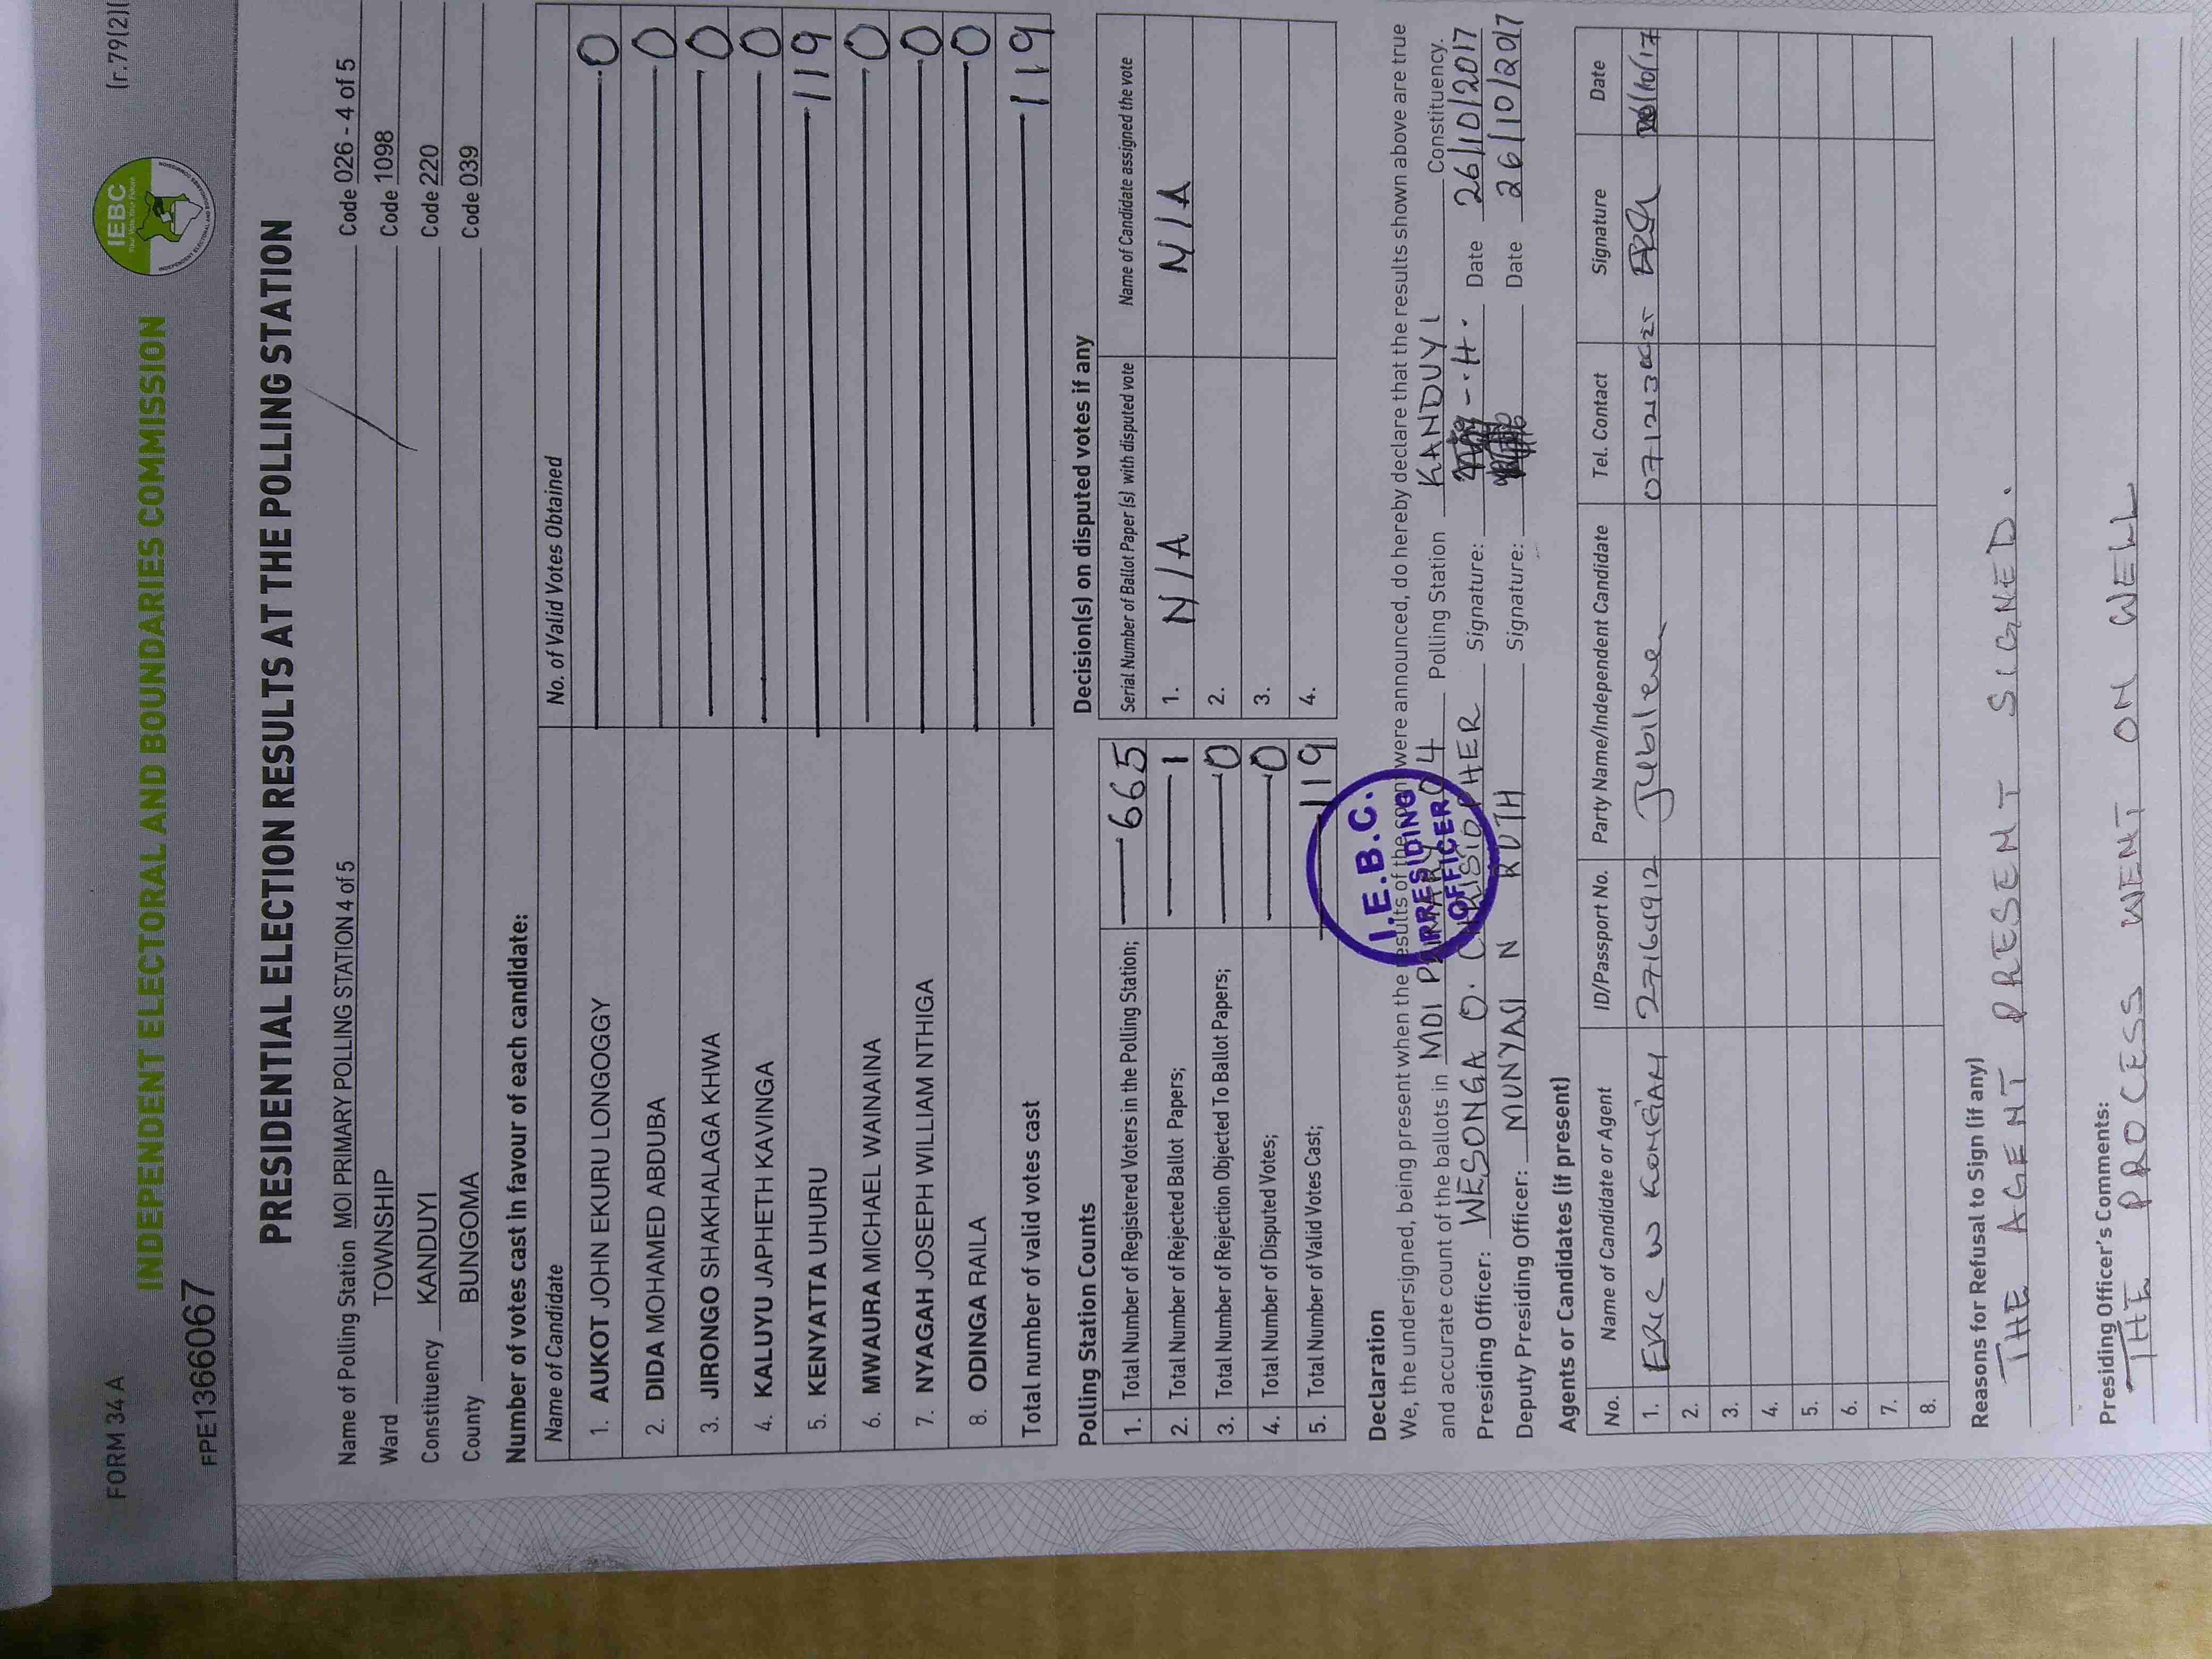 FORM 34 A
(r.79(2)(
IEBC
INDEPENDENT ELECTORAL AND BOUNDARIES COMMISSION
FPE1366067
PRESIDENTIAL ELECTION RESULTS AT THE POLLING STATION
Name of Polling Station MOI PRIMARY POLLING STATION 4 of 5 Code 026 - 4 of 5
Ward TOWNSHIP Code 1098
Constituency KANDUYI Code 220
County BUNGOMA Code 039
Number of votes cast in favour of each candidate:
Name of Candidate No. of Valid Votes Obtained
1. AUKOT JOHN EKURU LONGOGGY 0
2. DIDA MOHAMED ABDUBA 0
3. JIRONGO SHAKHALAGA KHWA 0
4. KALUYU JAPHETH KAVINGA 0
5. KENYATTA UHURU 119
6. MWAURA MICHAEL WAINAINA 0
7. NYAGAH JOSEPH WILLIAM NTHIGA 0
8. ODINGA RAILA 0
Total number of valid votes cast 119
Polling Station Counts
1. Total Number of Registered Voters in the Polling Station; 665
2. Total Number of Rejected Ballot Papers; 1
3. Total Number of Rejection Objected To Ballot Papers; 0
4. Total Number of Disputed Votes; 0
5. Total Number of Valid Votes Cast; 119
Decision(s) on disputed votes if any
Serial Number of Ballot Paper (s) with disputed vote Name of Candidate assigned the vote
1. N/A N/A
2.
3.
4.
I.E.B.C.
PRESIDING
OFFICER
Declaration
We, the undersigned, being present when the results of the count were announced, do hereby declare that the results shown above are true
and accurate count of the ballots in MOI PRIMARY 04 Polling Station KANDUYI Constituency.
Presiding Officer: WESONGA O. CHRISTOPHER Signature: Date 26/10/2017
Deputy Presiding Officer: MUNYASI N RUTH Signature: Date 26/10/2017
Agents or Candidates (if present)
No. Name of Candidate or Agent ID/Passport No. Party Name/Independent Candidate Tel. Contact Signature Date
1. ERIC W 27164912 Jubilee /10/17
2.
3.
4.
5.
6.
7.
8.
Reasons for Refusal to Sign (if any)
THE AGENT PRESENT SIGNED.
Presiding Officer's Comments:
THE PROCESS WENT ON WELL